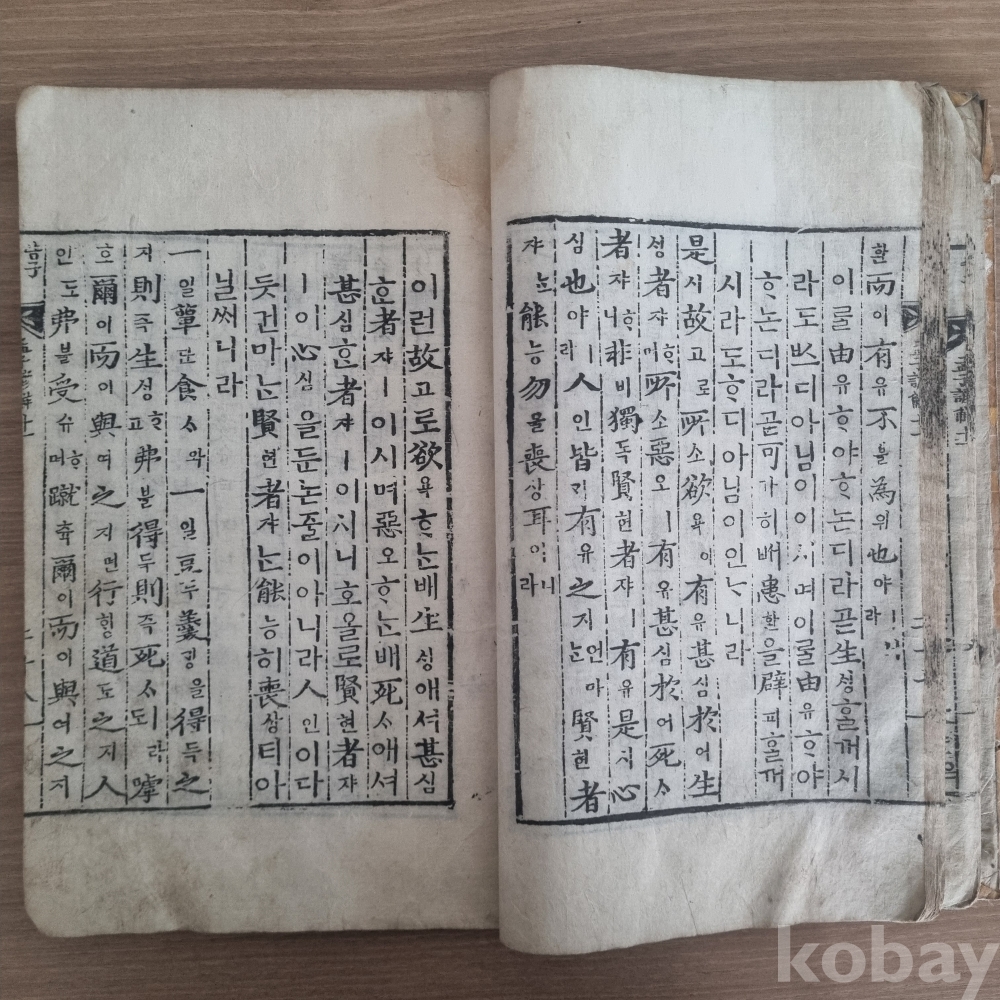 환而이有유不블為위也야ㅣ니라
이룰由유ᄒᆞ야ᄒᆞ논디라곧生성ᄒᆞᆯ개시
라도ᄡᅳ디아님이이시며이룰由유ᄒᆞ야
ᄒᆞ논디라곧可가히배患환을辟피ᄒᆞᆯ개
시라도ᄒᆞ디아님이인ᄂᆞ니라
是시故고로所소欲욕이有유甚심於어生
성者쟈ᄒᆞ며所소惡오ㅣ有유甚심於어死ᄉᆞ
者쟈ᄒᆞ니非비獨독賢현者쟈ㅣ有유是시心
심也야ㅣ라人인皆ᄀᆡ有유之지언마ᄂᆞᆫ賢현者
쟈ᄂᆞᆫ能능勿믈喪상耳이니라
이런故고로欲욕ᄒᆞᄂᆞᆫ배生ᄉᆡᆼ애셔甚심
ᄒᆞᆫ者쟈ㅣ이시며惡오ᄒᆞᄂᆞᆫ배死ᄉᆞ애셔
甚심ᄒᆞᆫ者쟈ㅣ이시니호올로賢현者쟈
ㅣ이心심을둔논줄이아니라人인이다
듯건마ᄂᆞᆫ賢현者쟈ᄂᆞᆫ能능히喪상티아
닐ᄯᆞᄅᆞᆷ이니라
一일簞단食ᄉᆞ와一일豆두羹ᄀᆡᆼ을得득之
지則즉生ᄉᆡᆼᄒᆞ고弗블得득則즉死ᄉᆞㅣ라도嘑
호爾이而이與여之지면行ᄒᆡᆼ道도之지人
인도弗블受슈ᄒᆞ며蹴츅爾이而이與여之지
孟子諺解十一